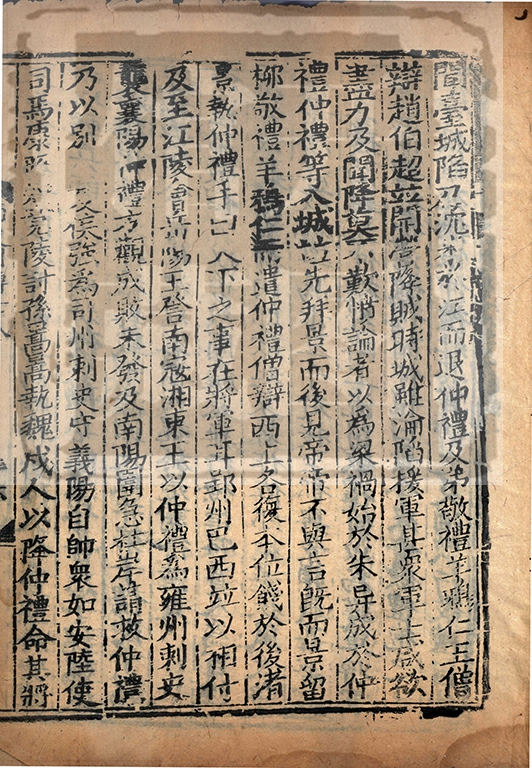 聞臺城陷乃沈米於江而退仲禮及弟敬禮羊鴉仁王僧
辯趙伯超並開營降賊時城雖淪陷援軍甚衆軍士咸欲
盡力及聞降莫不歎憤論者以爲梁禍始於朱异成於仲
禮仲禮等入城並先拜景而後見帝帝不與言旣而景留
柳敬禮羊鴉仁而遣仲禮僧辯西上各復本位餞於後渚
景執仲禮手曰天下之事在將軍耳郢州巴西並以相付
及至江陵會岳陽王詧南寇湘東王以仲禮爲雍州刺史
襲襄陽仲禮方觀成敗未發及南陽圍急杜岸請救仲禮
乃以別夏侯強爲司州刺史守義陽自帥衆如安陸使
司馬康竟陵討孫暠暠執魏戍人以降仲禮命其將